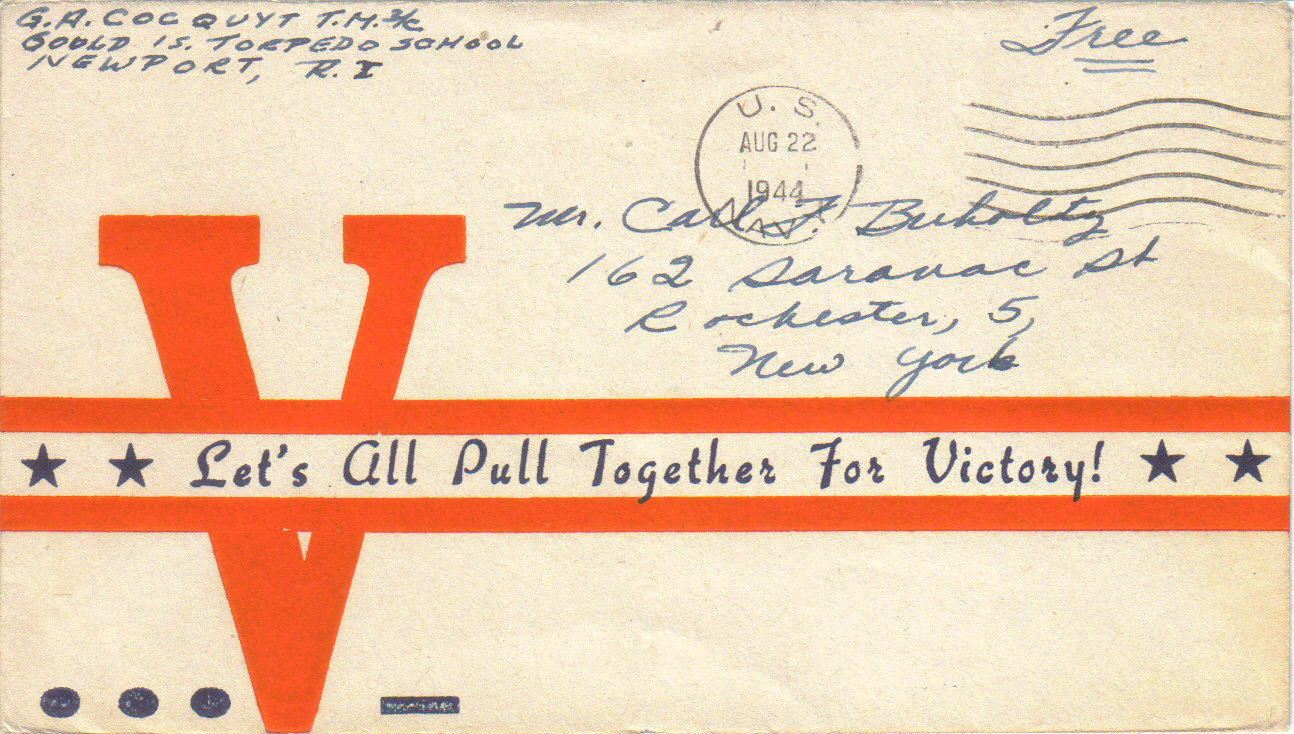 G.A. COCQUYT T.M. 3/c
GOULD IS. TORPEDO SCHOOL
NEWPORT, R.I
Free
U. S.
AUG 22
1944
NAVY
Mr. Carl F. Buholtz
162 Saranac St
Rochester, 5,
New York
Let's All Pull Together For Victory!